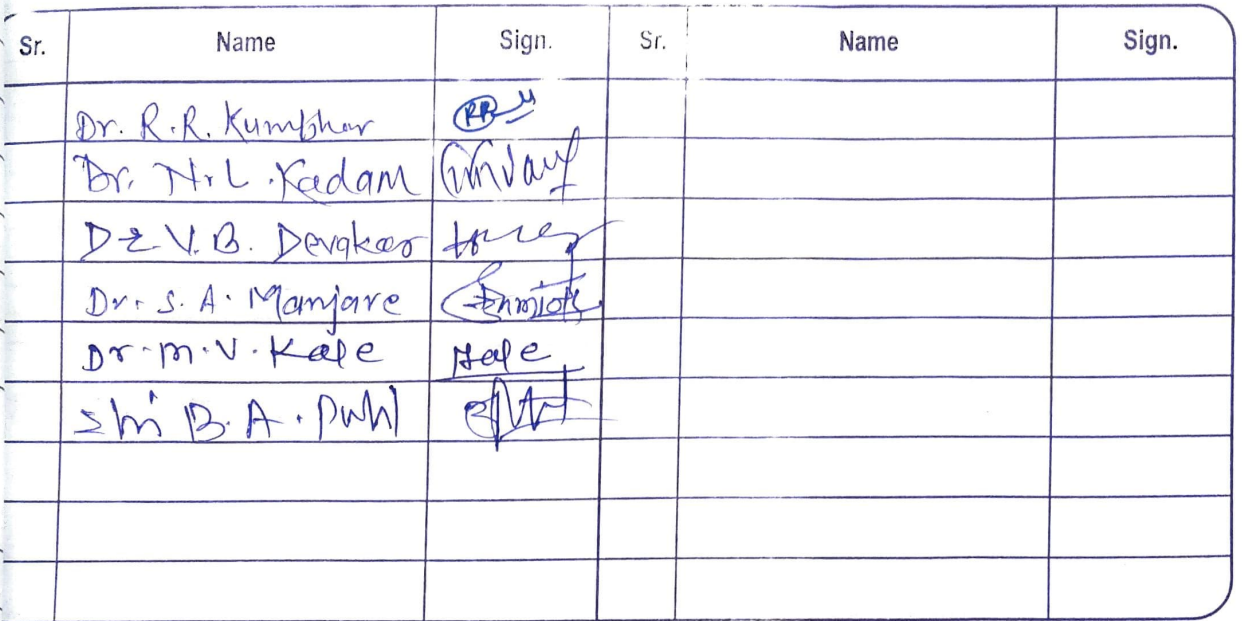 Sr. Name Sign. Sr. Name Sign.
Dr. R.R. Kumbhar
Dr. N.L. Kadam
Dr V.B. Devakar
Dr. S. A. Manjare
Dr. M.V. Kale Hale
Shri B. A.